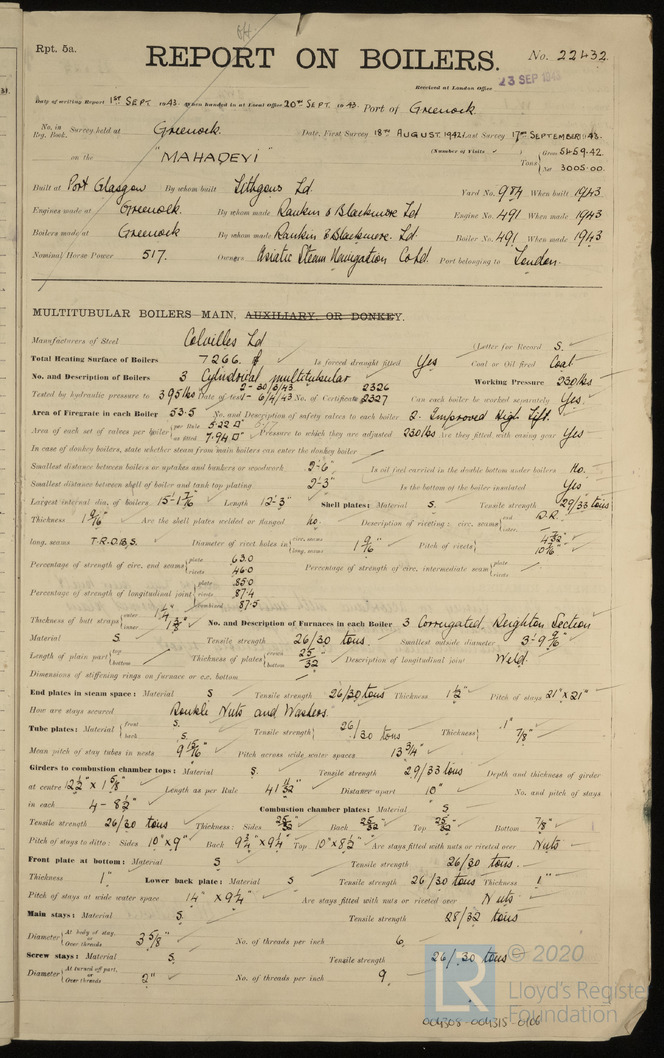 Rpt. 5a.
REPORT ON BOILERS.
No. 22432
Received at London Office 23 SEP 1943
Date of writing Report 1ST SEPT. 1943. When handed in at Local Office 20TH SEPT. 1943. Port of Greenock.
No. in Reg. Book. Survey held at Greenock. Date, First Survey 18TH AUGUST. 1942 Last Survey 17TH SEPTEMBER 1943.
on the "MAHADEVI" (Number of Visits ) Tons Gross 5459.42 Net 3005.00
Built at Port Glasgow By whom built Lithgows Ld. Yard No. 984 When built 1943
Engines made at Greenock. By whom made Rankin & Blackmore Ld Engine No. 491 When made 1943
Boilers made at Greenock By whom made Rankin & Blackmore. Ld. Boiler No. 491 When made 1943
Nominal Horse Power 517. Owners Asiatic Steam Navigation Co Ld. Port belonging to London.
MULTITUBULAR BOILERS—MAIN, AUXILIARY, OR DONKEY.
Manufacturers of Steel Colvilles Ld (Letter for Record S.
Total Heating Surface of Boilers 7266. Is forced draught fitted Yes Coal or Oil fired Coal
No. and Description of Boilers 3 Cylindrical multitubular Working Pressure 230 lbs
Tested by hydraulic pressure to 395 lbs Date of test 2 - 30/3/43 1 - 6/4/43 No. of Certificate 2326 2327 Can each boiler be worked separately Yes.
Area of Firegrate in each Boiler 53.5 No. and Description of safety valves to each boiler 2. Improved High Lift.
Area of each set of valves per boiler per Rule 5.22 as fitted 7.94 Pressure to which they are adjusted 230 lbs Are they fitted with easing gear Yes
In case of donkey boilers, state whether steam from main boilers can enter the donkey boiler
Smallest distance between boilers or uptakes and bunkers or woodwork 2'-6" Is oil fuel carried in the double bottom under boilers No.
Smallest distance between shell of boiler and tank top plating 2'-3" Is the bottom of the boiler insulated Yes
Largest internal dia. of boilers 15'-1 7/16" Length 12'-3" Shell plates: Material S. Tensile strength 29/33 tons
Thickness 1 9/16" Are the shell plates welded or flanged No. Description of riveting: circ. seams end D.R. inter.
long. seams T.R.D.B.S. Diameter of rivet holes in circ. seams long. seams 1 9/16" Pitch of rivets
Percentage of strength of circ. end seams plate 63.0 rivets 46.0 Percentage of strength of circ. intermediate seam plate rivets
Percentage of strength of longitudinal joint plate 85.0 rivets 87.4 combined 87.5
Thickness of butt straps outer 1 1/4" inner 1 3/8" No. and Description of Furnaces in each Boiler 3 Corrugated, Deighton Section
Material S Tensile strength 26/30 tons. Smallest outside diameter 3'-9 9/16"
Length of plain part top bottom Thickness of plates crown bottom 25/32" Description of longitudinal joint Weld.
Dimensions of stiffening rings on furnace or c.c. bottom
End plates in steam space: Material S Tensile strength 26/30 tons Thickness 1 1/2" Pitch of stays 21" x 21"
How are stays secured Double Nuts and Washers.
Tube plates: Material front S. back S. Tensile strength 26/30 tons Thickness 1" 7/8"
Mean pitch of stay tubes in nests 9 15/16" Pitch across wide water spaces 13 3/4"
Girders to combustion chamber tops: Material S. Tensile strength 29/33 tons Depth and thickness of girder
at centre 12 1/2" x 1 5/8" Length as per Rule 41 11/32" Distance apart 10" No. and pitch of stays
in each 4 - 8 1/2" Combustion chamber plates: Material S
Tensile strength 26/30 tons Thickness: Sides 25/32" Back 25/32" Top 25/32" Bottom 7/8"
Pitch of stays to ditto: Sides 10" x 9" Back 9 3/4" x 9 1/4" Top 10" x 8 1/2" Are stays fitted with nuts or riveted over Nuts
Front plate at bottom: Material S Tensile strength 26/30 tons.
Thickness 1" Lower back plate: Material S Tensile strength 26/30 tons Thickness 1"
Pitch of stays at wide water space 14" x 9 1/4" Are stays fitted with nuts or riveted over Nuts
Main stays: Material S. Tensile strength 28/32 tons
Diameter At body of stay, or Over threads 3 5/8" No. of threads per inch 6.
Screw stays: Material S. Tensile strength 26/30 tons
Diameter At turned off part, or Over threads 2" No. of threads per inch 9.
LR © 2020
Lloyd's Register
Foundation
004305-004315-0106